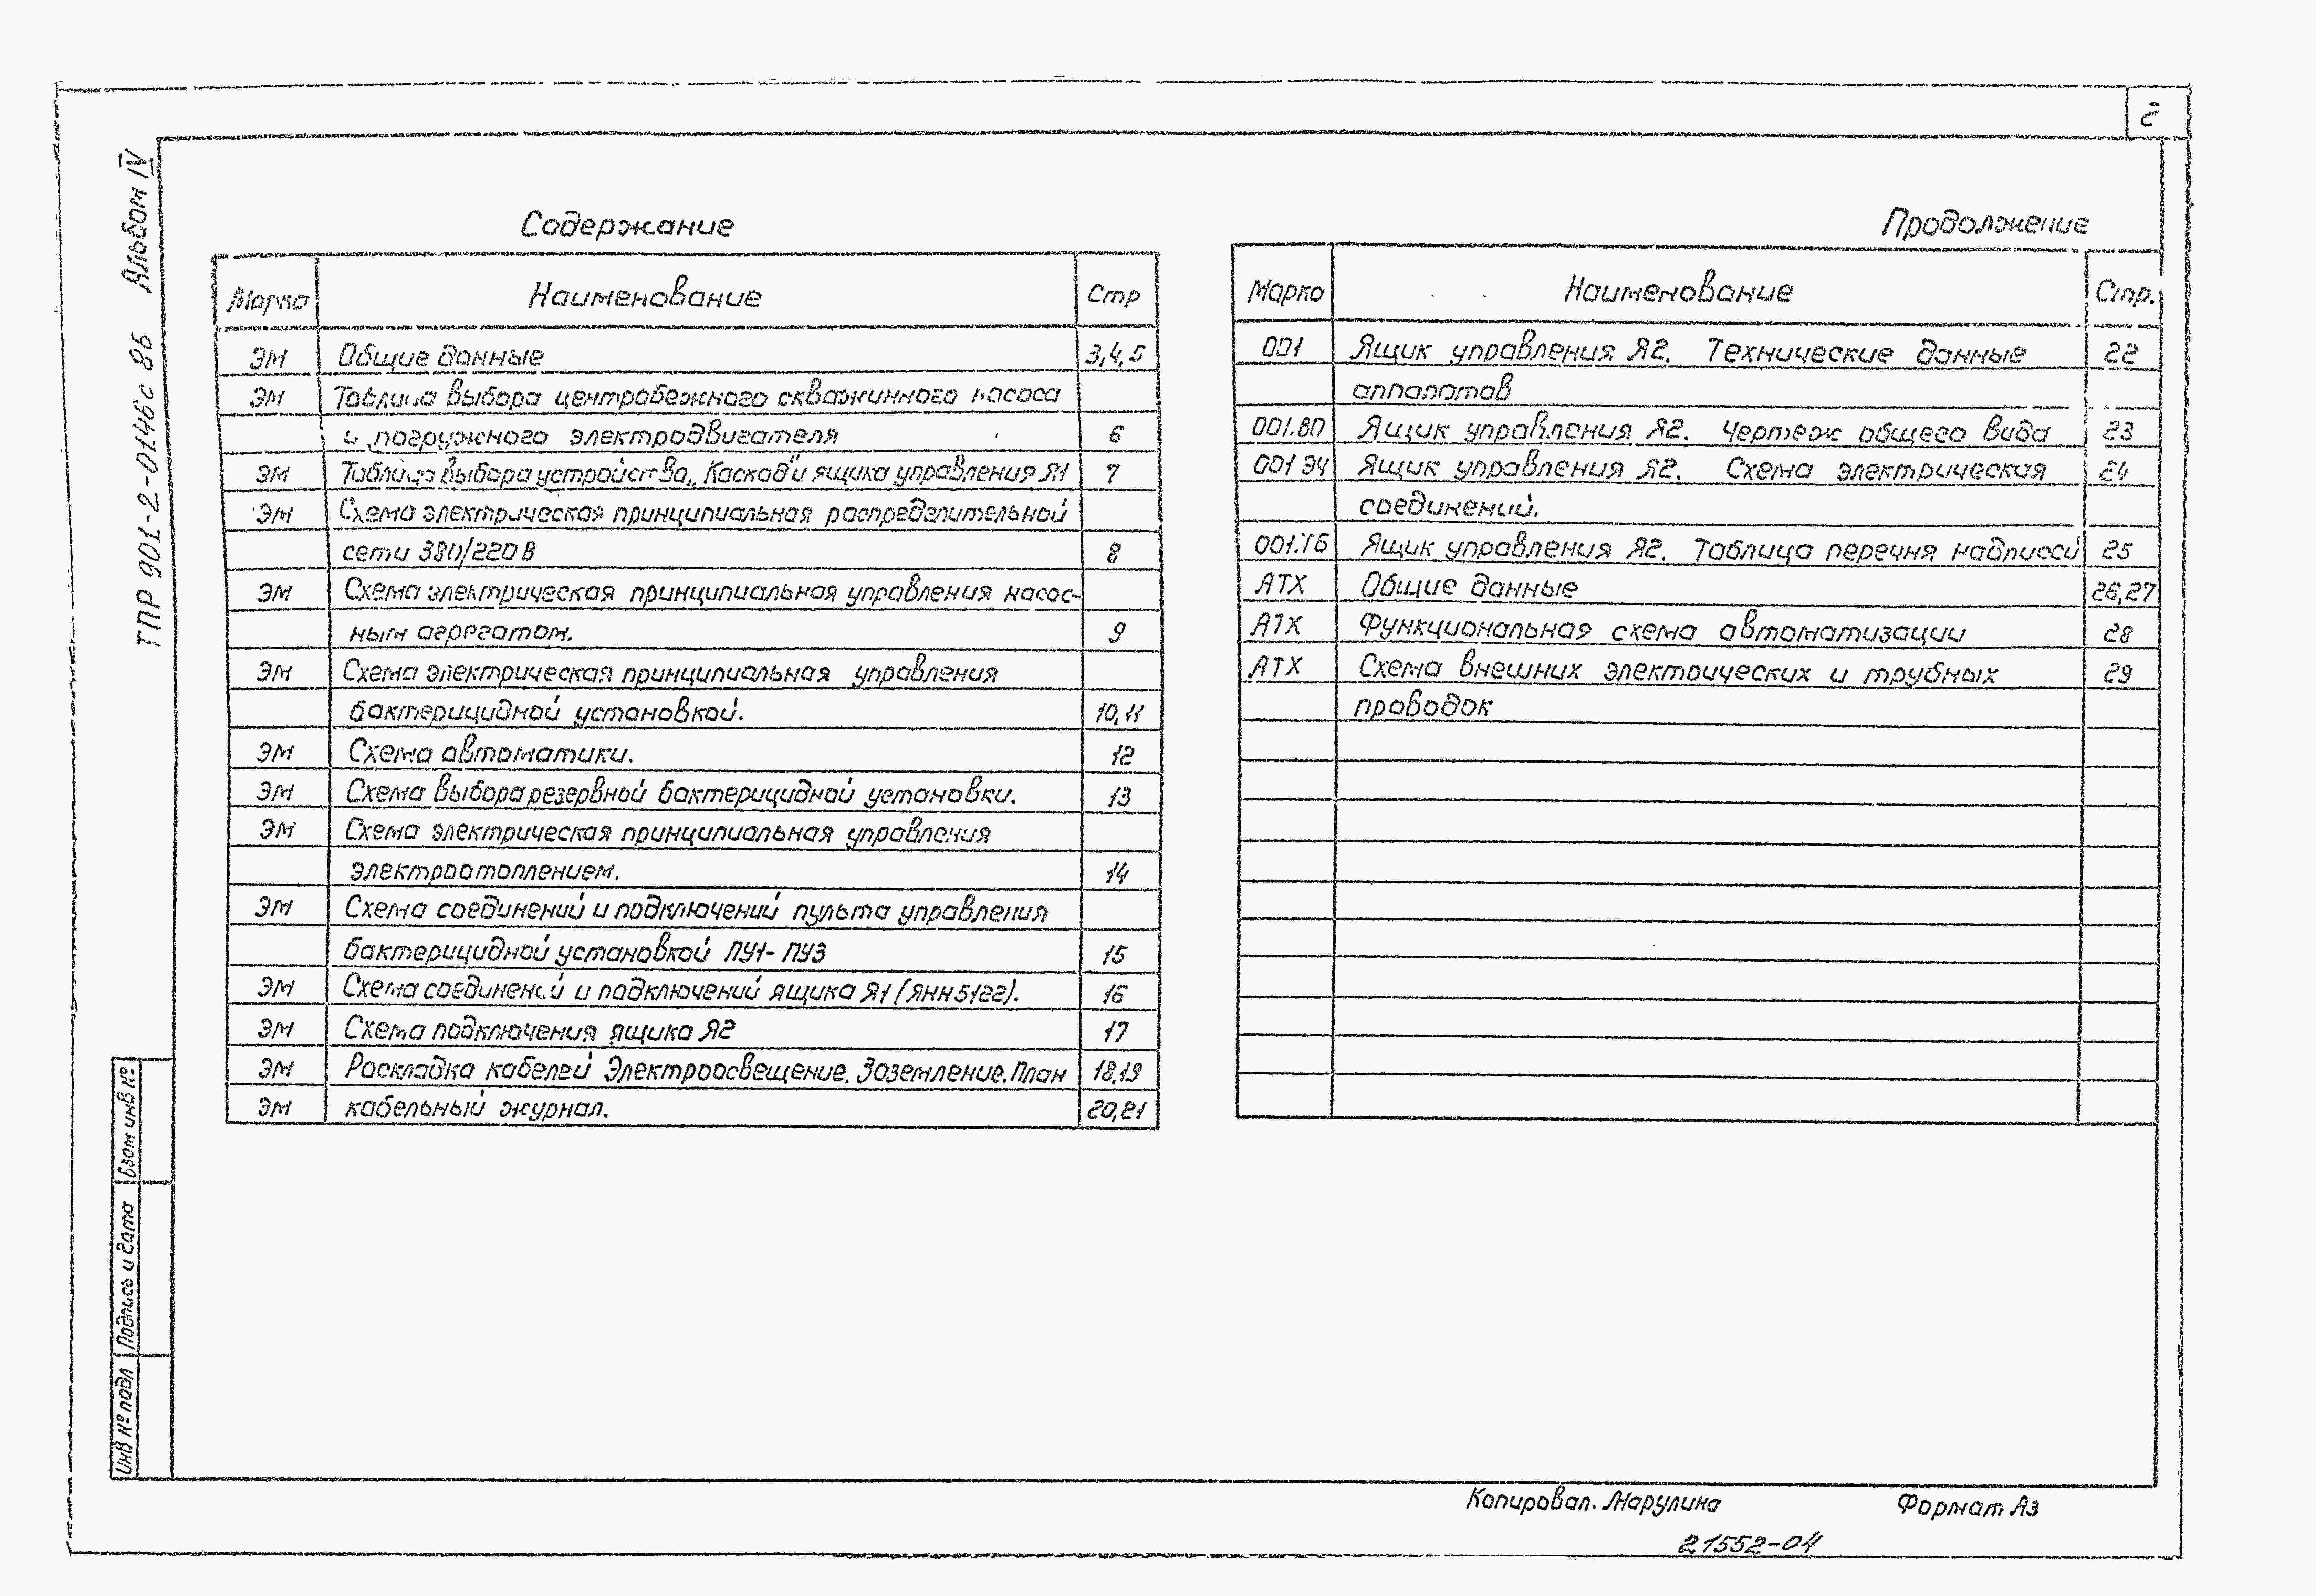 2
ТПР 901-2-0146с 86 Альбом IV
Содержание
Марка Наименование Стр
ЭМ Общие данные 3,4,5
ЭМ Таблица выбора центробежного скважинного насоса
и погружного электродвигателя 6
ЭМ Таблица выбора устройства „Каскад" и ящика управления Я1 7
ЭМ Схема электрическая принципиальная распределительной
сети 380/220В 8
ЭМ Схема электрическая принципиальная управления насос-
ным агрегатом. 9
ЭМ Схема электрическая принципиальная управления
бактерицидной установкой. 10,11
ЭМ Схема автоматики. 12
ЭМ Схема выбора резервной бактерицидной установки. 13
ЭМ Схема электрическая принципиальная управления
электроотоплением. 14
ЭМ Схема соединений и подключений пульта управления
бактерицидной установкой ПУ1-ПУ3 15
ЭМ Схема соединений и подключений ящика Я1 (ЯНН5122). 16
ЭМ Схема подключения ящика Я2 17
ЭМ Раскладка кабелей Электроосвещение. Заземление. План 18,19
ЭМ кабельный журнал. 20,21
Продолжение
Марка Наименование Стр.
001 Ящик управления Я2. Технические данные 22
аппаратов
001.ВО Ящик управления Я2. Чертеж общего вида 23
001 Э4 Ящик управления Я2. Схема электрическая 24
соединений.
001.ТБ Ящик управления Я2. Таблица перечня надписей 25
АТХ Общие данные 26,27
АТХ Функциональная схема автоматизации 28
АТХ Схема внешних электрических и трубных 29
проводок
Взам инв №
Подпись и дата
Инв № подл
Копировал. Марулина Формат А3
21552-04